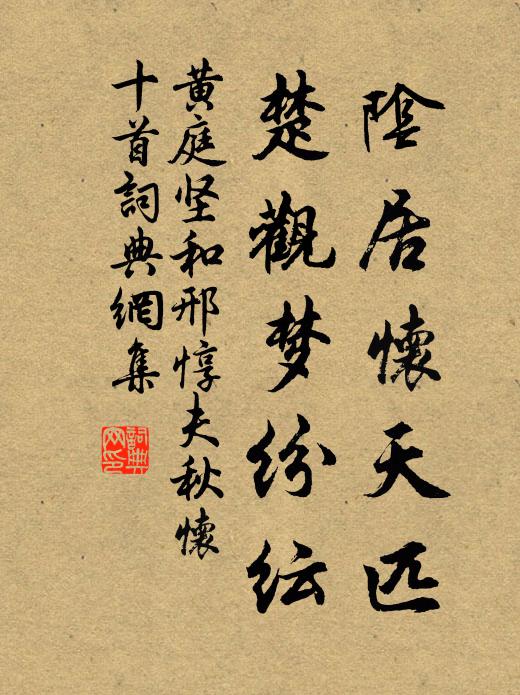 陰居懷天匹
楚觀梦紛紜
黄庭坚和邢惇夫秋懷
十首詞典網集
詞典
网印